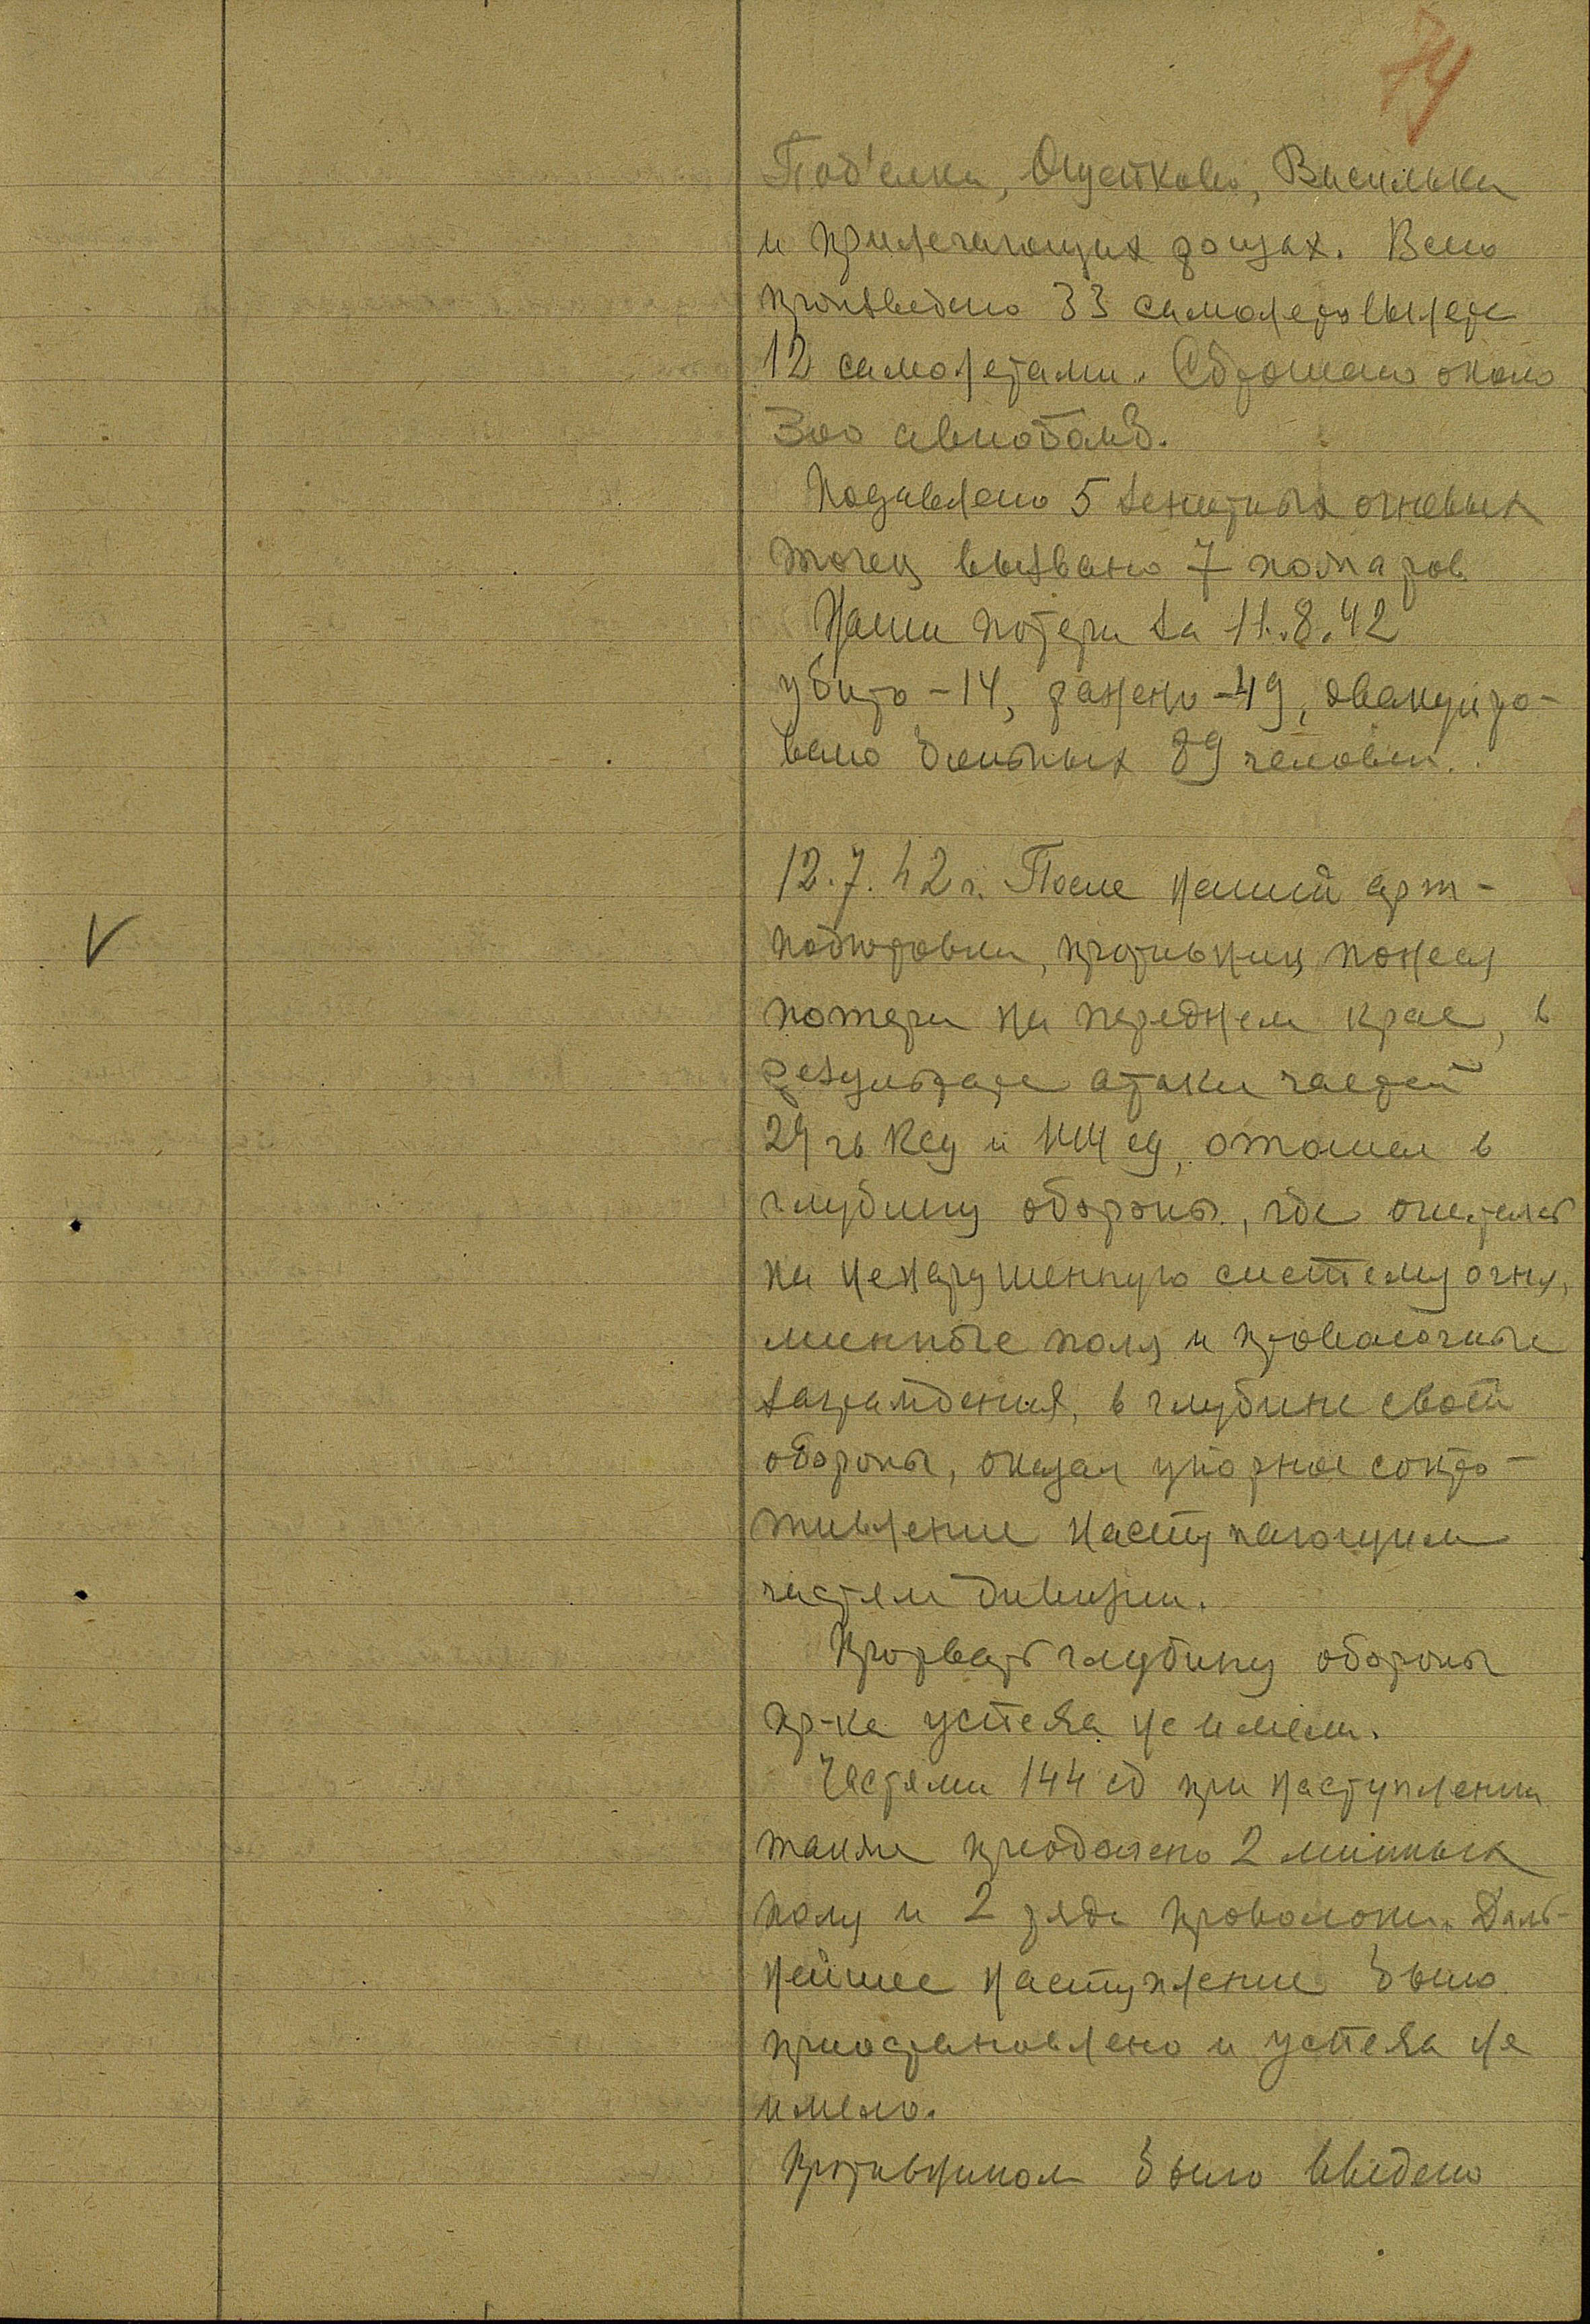 74
Под'елки, Огустково, Васильки
и прилегающих рощах. Всего
произведено 33 самолетовылета
12 самолетами. Сброшено около
300 авиобомб.
Подавлено 5 зенитных огневых
точец вызвано 7 пожаров
Наши потери за 11.8.42
убито - 14, ранено - 49, эвакуиро-
вано больных 89 человек.
12.7.42 г. После нашей арт-
подготовки, противниц понеся
потери на переднем крае, в
результате атаки частей
24 гв Ксд и 144 сд, отошел в
глубину обороны, где опираясь
на ненарушенную систему огня,
минные поля и проволочные
заграждения, в глубине своей
обороны, оказал упорное сопро-
тивление наступающим
частям дивизии.
Прорвать глубину обороны
пр-ка успеха не имели.
Частями 144 сд при наступлении
также преодолено 2 минных
поля и 2 ряда проволоки. Даль-
нейшее наступление было
приостановлено и успеха не
имело.
Противником было введено